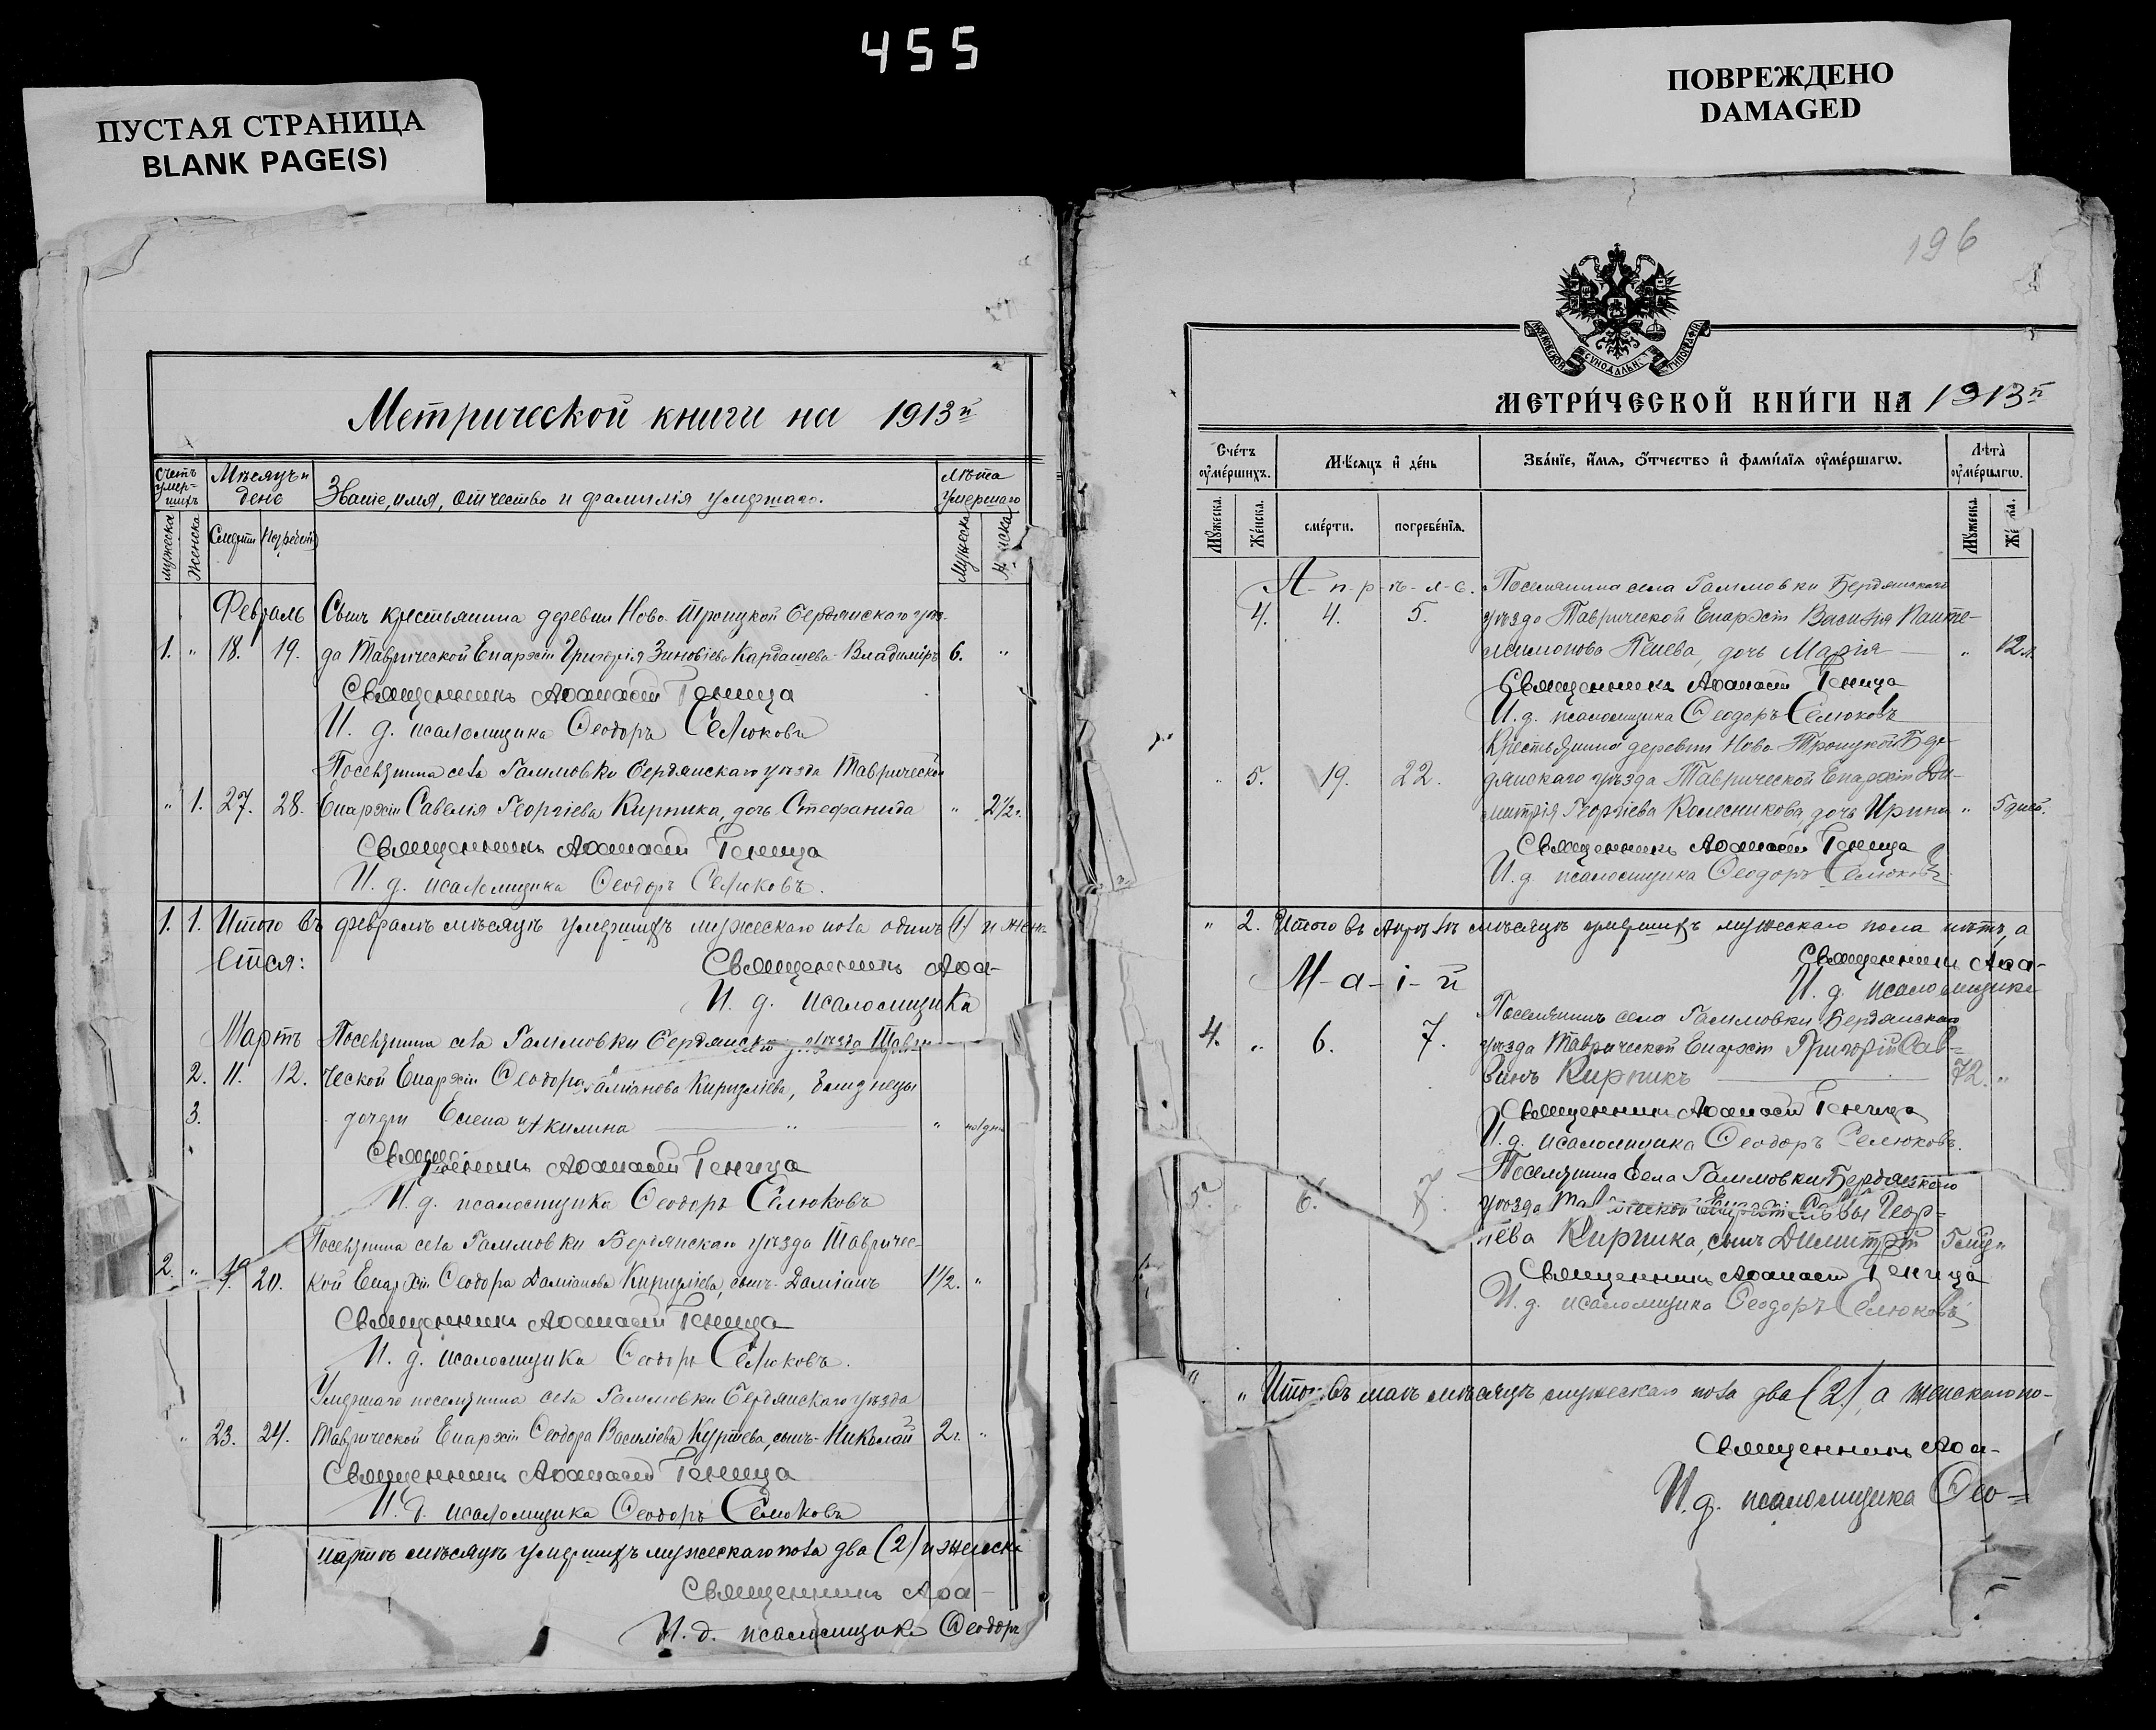 455
ПУСТАЯ СТРАНИЦА
BLANK PAGE(S)
ПОВРЕЖДЕНО
DAMAGED
Метрической книги на 1913й
Счетъ умер- шихъ
Мѣсяцъ и день
Званіе, имя, отчество и фамилія умершаго.
Лѣта умершаго
Мужеска Женска
Смерти
Мужеска
Февраль Сынъ крестьянина деревни Ново-Троицкой Бердянскаго уѣз-
1. " 18. 19. да Таврической Епархіи Григорія Зиновіева Кардашева-Владиміръ 6. "
Священникъ Аѳанасій Геница
И. д. псаломщика Ѳеодоръ Селюковъ
Поселянина села Гаммовки Бердянскаго уѣзда Таврической
" 1. 27. 28. Епархіи Савелія Георгіева Кирпика, дочь Стефанида " 2½ г.
Священникъ Аѳанасій Геница
И. д. псаломщика Ѳеодоръ Селюковъ.
1. 1. Итого въ февралѣ мѣсяцѣ умершихъ мужескаго пола одинъ (1) и женс
Священникъ Аѳа-
И. д. псаломщика
Мартъ Поселянина села Гаммовки Бердянск уѣзда Таври
2. 11. 12. ческой Епархіи Ѳеодора Даміанова Киризліева, близнецы
3. дочери Елена и Акилина "
Священникъ Аѳанасій Геница
И. д. псаломщика Ѳеодоръ Селюковъ
Поселянина села Гаммовки Бердянскаго уѣзда Тавричес-
2. " 19. 20. кой Епархіи Ѳеодора Даміанова Киризліева, сынъ-Даміанъ 1½. "
Священникъ Аѳанасій Геница
И. д. псаломщика Ѳеодоръ Селюковъ.
Умершаго поселянина села Гаммовки Бердянскаго уѣзда
" 23. 24. Таврической Епархіи Ѳеодора Василіева Куртева, сынъ-Николай 2 г. "
Священникъ Аѳанасій Геница
И. д. псаломщика Ѳеодоръ Селюковъ
мартѣ мѣсяцѣ умершихъ мужескаго пола два (2) и женска
Священникъ Аѳа-
И. д. псаломщика Ѳеодоръ
196
МОСКОВСКОЙ СѴНОДАЛЬН. ТИПОГРАФІИ
МЕТРИ́ЧЕСКОЙ КНИ́ГИ НА 1913й
Сче́тъ ᲂу҆ме́ршихъ.
Мѣ́сяцъ и҆ де́нь
Зва́нїе, и҆́мя, ѻ҆́тчество и҆ фами́лїя ᲂу҆ме́ршагѡ.
Лѣ́та ᲂу҆ме́ршагѡ.
Мꙋ́жеска.
Же́нска.
сме́рти.
погребе́нїя.
Мꙋ́жеска.
А-п-р-ѣ-л-ь. Поселянина села Гаммовки Бердянскаго
4. 4. 5. уѣзда Таврической Епархіи Василія Панте-
леимонова Пеиева, дочь Марія " 12 л.
Священникъ Аѳанасій Геница
И. д. псаломщика Ѳеодоръ Селюковъ
Крестьянина деревни Ново-Троицкой Бер-
" 5. 19. 22. дянскаго уѣзда Таврической Епархіи Ди-
митрія Георгіева Колесникова, дочь Ирина " 5 дней.
Священникъ Аѳанасій Геница
И. д. псаломщика Ѳеодоръ Селюковъ
" 2. Итого въ Апрѣлѣ мѣсяцѣ умершихъ мужескаго пола нѣтъ, а
Священникъ Аѳа-
М-а-і-й И. д. псаломщика
Поселянинъ села Гаммовки Бердянскаго
4. " 6. 7. уѣзда Таврической Епархіи Григорій Сав-
винъ Кирпикъ 72. "
Священникъ Аѳанасій Геница
И. д. псаломщика Ѳеодоръ Селюковъ.
Поселянина села Гаммовки Бердянскаго
5. 6. 7. уѣзда Таврической Епархіи Саввы Геор-
гіева Кирпика, сынъ Димитрій
Священникъ Аѳанасій Геница
И. д. псаломщика Ѳеодоръ Селюковъ
" Итого въ маѣ мѣсяцѣ мужескаго пола два (2), а женскаго по-
Священникъ Аѳа-
И. д. псаломщика Ѳео-